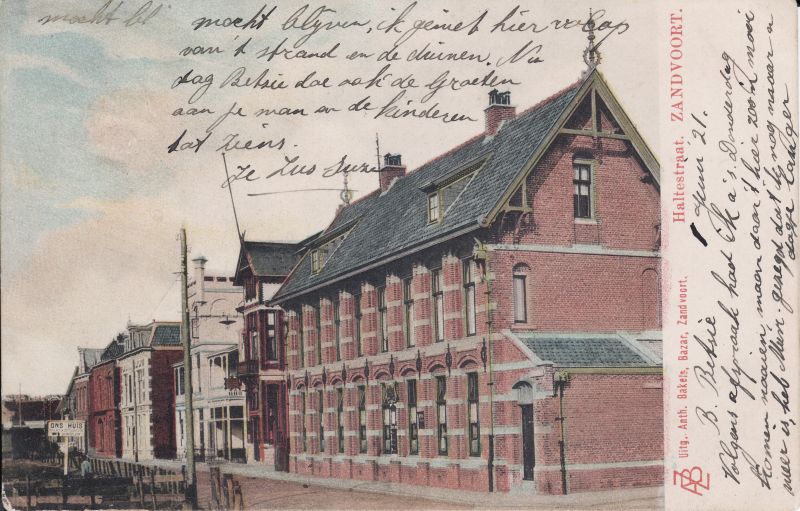 Haltestraat. ZANDVOORT.
Uitg. Anth. Bakels, Bazar, Zandvoort.
AB
Z
ONS HUIS
Juni 21.
B. Betsie
Volgens afspraak had ik a's. Donderdag
komen naaien, maar daar 't hier zoo'n mooi
weer is, heb Mevr. gezegd dat ik nog maar a
dagje langer
mocht bl
mocht blijven, ik geniet hier volop
van 't strand en de duinen. Nu
dag Betsie doe ook de Groeten
aan je man en de kinderen
tot ziens.
Je Zus